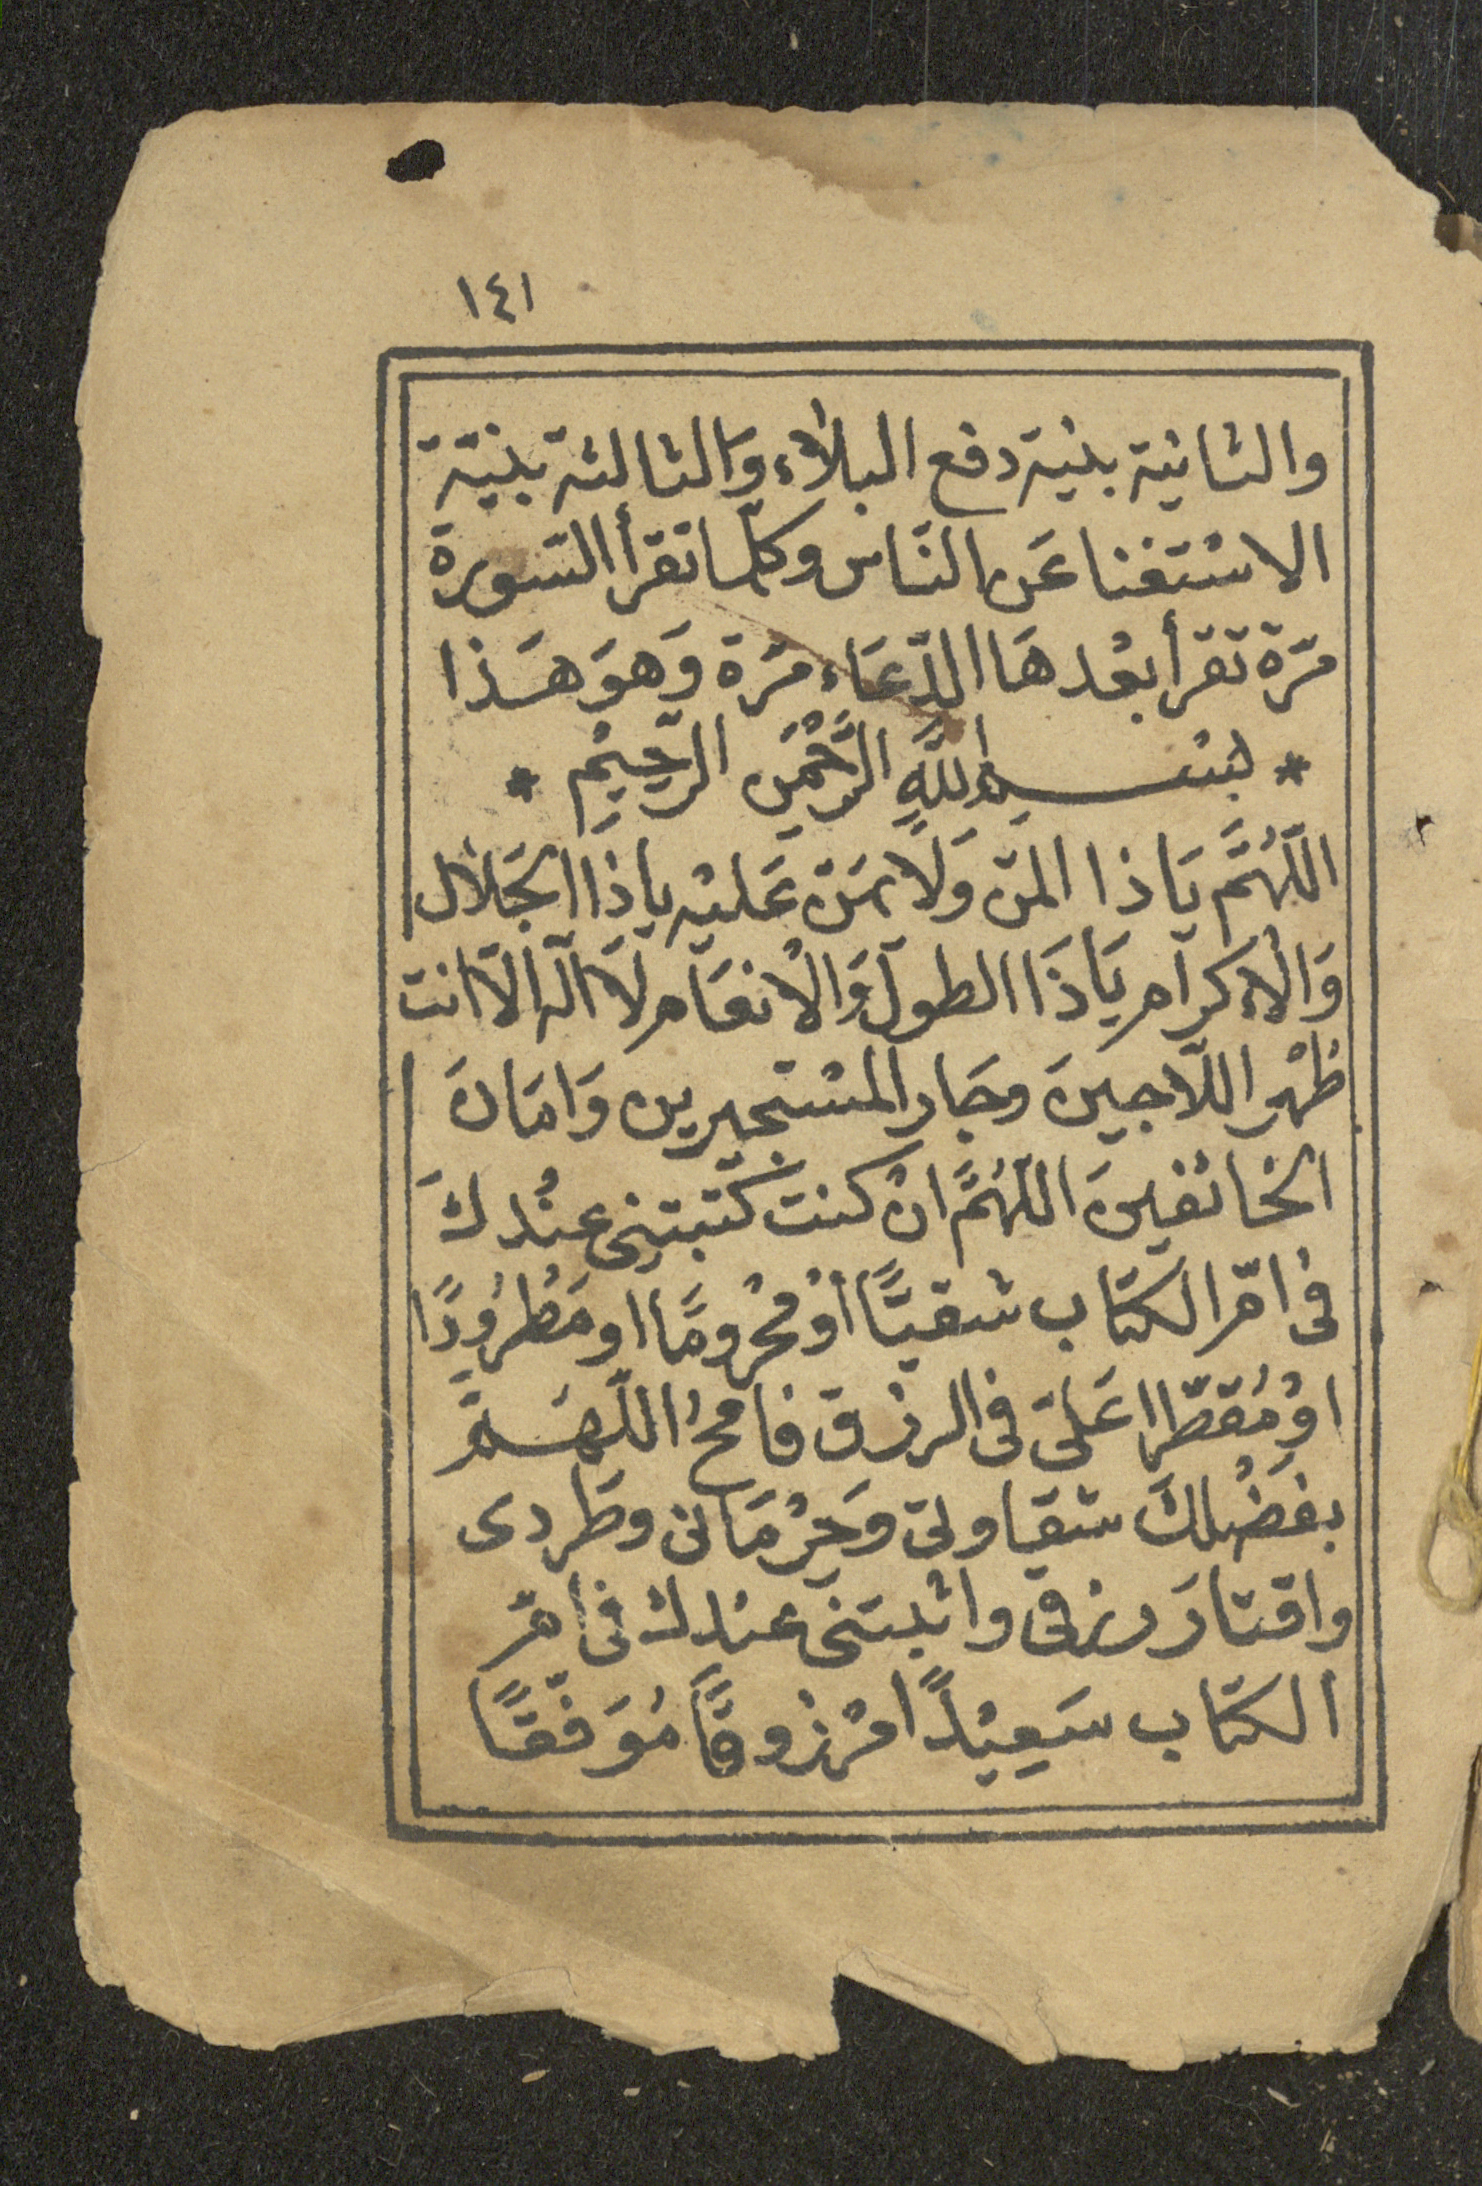 ١٤١
والثانية بنية دفع البلاء، والثالثة بنيّة
الاسْتغنا عَن النّاس وكلّما تقرأ السّورة
مرّة تقرأ بعْدهَا الدّعَاء مرّة وَهوَ هَذا
* بسْم اللَّهِ الرَّحْمَنِ الرَّحِيْمِ *
اللَّهُمَّ يَاذا المنّ وَلَا يمَنّ عَليْه ياذَا الجَلَال
وَالْاكرام يَاذَا الطول وَالْانعَام لَا اله الّا انت
ظهْر اللّاجينَ وجَار المسْتجيرين وَامَانَ
الخائفينَ اللّهُمَّ انْ كنت كتبتنى عنْدكَ
فى امّ الكتَاب شقيًّا اوْ محْرومًا او مَطْرُودًا
اوْ مُقتّرا عَليّ فى الرزق فامحُ اللّهُمَّ
بفضْلكَ شقاوتى وَحِرْمَانى وطَردى
واقتارَ رزقى واثبتنى عندك فى امّ
الكتَاب سَعِيْدًا مرْزُوقًا مُوَفّقًا